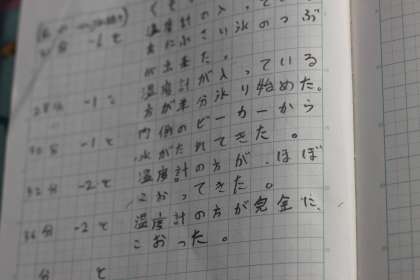 温度計の入って
氷の つぶ
が出来た。
温度計が入っている
方が半分氷り始めた。
28分 -1℃
内側のビーカーから
30分 -1℃ 水がたれてきた。
温度計の方が、ほぼ
32分 -2℃ こおってきた。
温度計の方が完全に、
36分 -2℃ こおった。
分 ℃